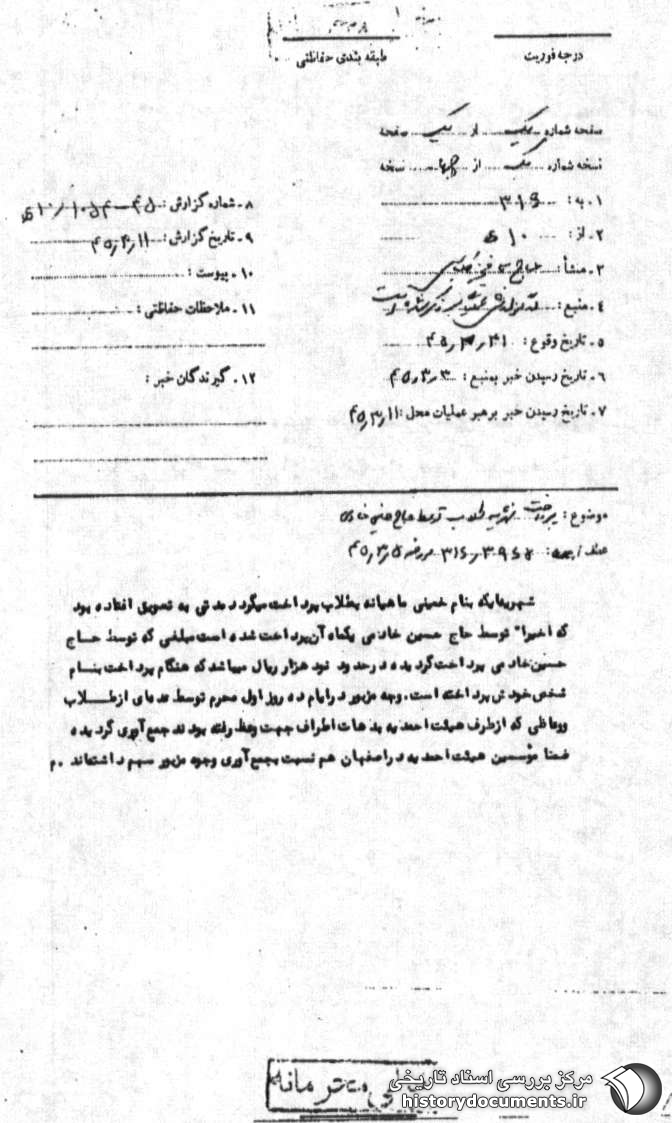 درجه فوریت
طبقه بندی حفاظتی
صفحه شماره یک از یک صفحه
نسخه شماره یک از چهار نسخه
۱ـ به: ۳۱۶
۲ـ از: ۱۰ ه
۳ـ منشأ:
۴ـ منبع:
۵ـ تاریخ وقوع:
۶ـ تاریخ رسیدن خبر بمنبع: ۴۵٫۳٫۳
۷ـ تاریخ رسیدن خبر برهبر عملیات محل: ۴۵٫۳٫۱۱
۸ـ شماره گزارش:
۹ـ تاریخ گزارش: ۴۵٫۳٫۱۱
۱۰ـ پیوست:
۱۱ـ ملاحظات حفاظتی:
۱۲ـ گیرندگان خبر:
موضوع: پرداخت شهریه طلاب توسط حاج حسین خادمی
شهریه‌ایکه بنام خمینی ماهیانه بطلاب پرداخت میگردد مدتی به تعویق افتاده بود
که اخیرا" توسط حاج حسین خادمی یکماه آن پرداخت شده است مبلغی که توسط حاج
حسین خادمی پرداخت گردیده در حدود نود هزار ریال میباشد که هنگام پرداخت بنام
شخص خودش پرداخته است. وجه مزبور در ایام ده روز اول محرم توسط عده‌ای از طلاب
ووعاظی که ازطرف هیئت احمدیه بدهات اطراف جهت وعظ رفته بودند جمع آوری گردیده
ضمنا مؤسسین هیئت احمدیه در اصفهان هم نسبت بجمع آوری وجوه مزبور سهم داشته‌اند .م
مرکز بررسی اسناد تاریخی
historydocuments.ir